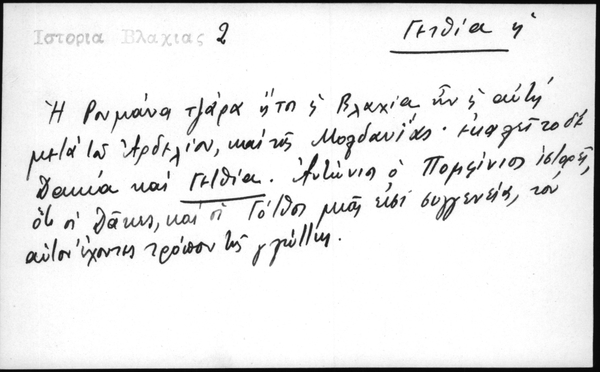 Ιστορια Βλαχιας 2
Γετθία ἡ
Ἡ Ρουμάνα τζάρα ἤτοι ἡ Βλαχία ἦν ἡ αὐτή
μετά τοῦ Ἀρδελίου, καί τῆς Μολδανΐας. ἐκαλεῖτο δέ
Δακία καί Γετθία. Ἀντώνιος ὁ Πομφίνιος ἱστορεῖ,
ὅτι οἱ Δᾶκες, καί οἱ Γότθοι μιᾶς εἰσί συγγενείας, τόν
αὐτόν ἔχοντες τρόπον τῆς γλώττης.